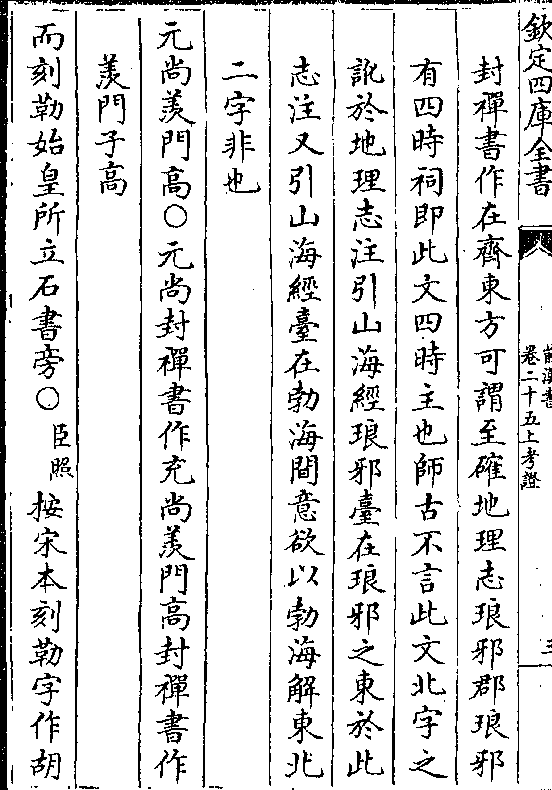 欽定四庫全書
前漢書
卷二十五上考證
三
封禪書作在齊東方可謂至確地理志琅邪郡琅邪
有四時祠即此文四時主也師古不言此文北字之
訛於地理志注引山海經琅邪臺在琅邪之東於此
志注又引山海經臺在勃海間意欲以勃海解東北
二字非也
元尚羡門高〇元尚封禪書作充尚羡門高封禪書作
羡門子高
而刻勒始皇所立石書旁〇臣照按宋本刻勒字作胡